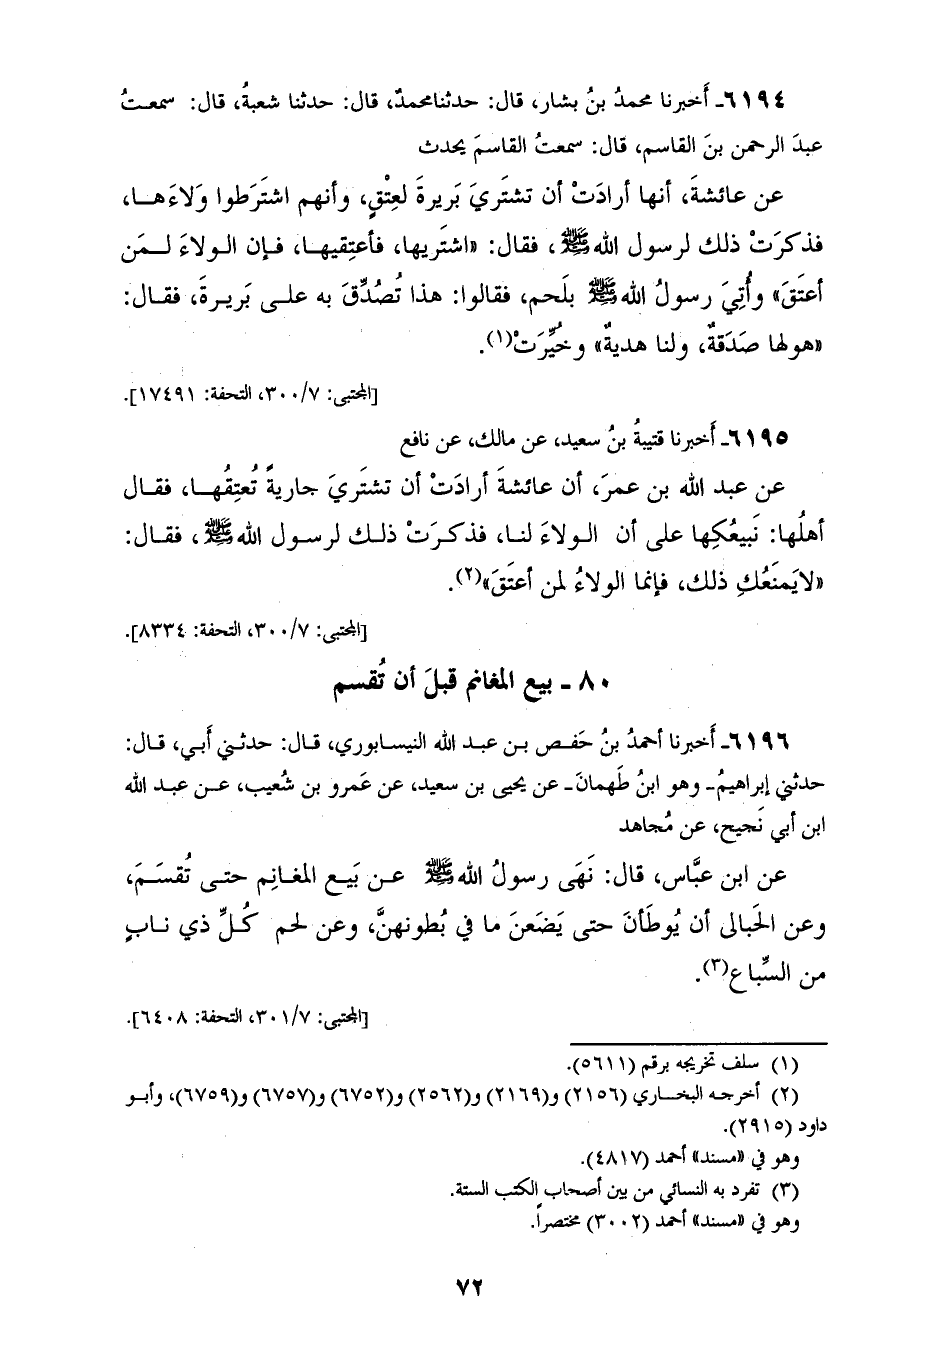 ٦١٩٤ـ أَخبرنا محمدُ بنُ بشار، قال: حدثنامحمدٌ، قال: حدثنا شعبةُ، قال: سمعتُ
عبدَ الرحمن بنَ القاسم، قال: سمعتُ القاسمَ يحدث
عن عائشةَ، أنها أرادَتْ أن تشتَريَ بَريرةَ لعِتْقٍ، وأنهم اشتَرَطوا وَلاءَهـا،
فذكرَتْ ذلك لرسول الله ﷺ، فقال: «اشتَريها، فأعتِقيهـا، فـإن الـولاءَ لـمَن
أعتَقَ» وأُتِيَ رسولُ الله ﷺ بلَحم، فقالوا: هذا تُصُدِّقَ به علـى بَريـرةَ، فقـال:
«هولها صَدَقةٌ، ولنا هديةٌ» وخُيِّرَتْ(١).
[المجتبى: ٣٠٠/٧، التحفة: ١٧٤٩١].
٦١٩٥ـ أَخبرنا قتيبةُ بنُ سعيد، عن مالك، عن نافع
عن عبد الله بن عمرَ، أن عائشةَ أرادَتْ أن تشتَريَ جاريةً تُعتِقُهـا، فقـال
أهلُها: نَبيعُكِها على أن الـولاءَ لنـا، فذكـرَتْ ذلـك لرسـول الله ﷺ، فقـال:
«لايَمنَعُكِ ذلك، فإنما الولاءُ لمن أعتَقَ»(٢).
[المجتبى: ٣٠٠/٧، التحفة: ٨٣٣٤].
٨٠ ـ بيع المغانم قبلَ أن تُقسم
٦١٩٦ـ أَخبرنا أحمدُ بنُ حَفـص بـن عبـد الله النيسـابوري، قـال: حدثـني أَبـي، قـال:
حدثني إبراهيمُ ـ وهو ابنُ طَهمانَ ـ عن يحيى بن سعيد، عن عَمرو بن شُعيب، عـن عبـد الله
ابن أبي نَجيح، عن مُجاهد
عن ابن عبَّاس، قال: نَهَى رسولُ الله ﷺ عـن بَيـع المغـانِم حتـى تُقسَـمَ،
وعن الحَبالى أن يُوطَأنَ حتى يَضَعنَ ما في بُطونهنَّ، وعن لحم كُلِّ ذي نـابٍ
من السِّباع(٣).
[المجتبى: ٣٠١/٧، التحفة: ٦٤٠٨].
(١) سلف تخريجه برقم (٥٦١١).
(٢) أخرجـه البخـاري (٢١٥٦) و(٢١٦٩) و(٢٥٦٢) و(٦٧٥٢) و(٦٧٥٧) و(٦٧٥٩)، وأبـو
داود (٢٩١٥).
وهو في «مسند» أحمد (٤٨١٧).
(٣) تفرد به النسائي من بين أصحاب الكتب الستة.
وهو في «مسند» أحمد (٣٠٠٢) مختصراً.
٧٢